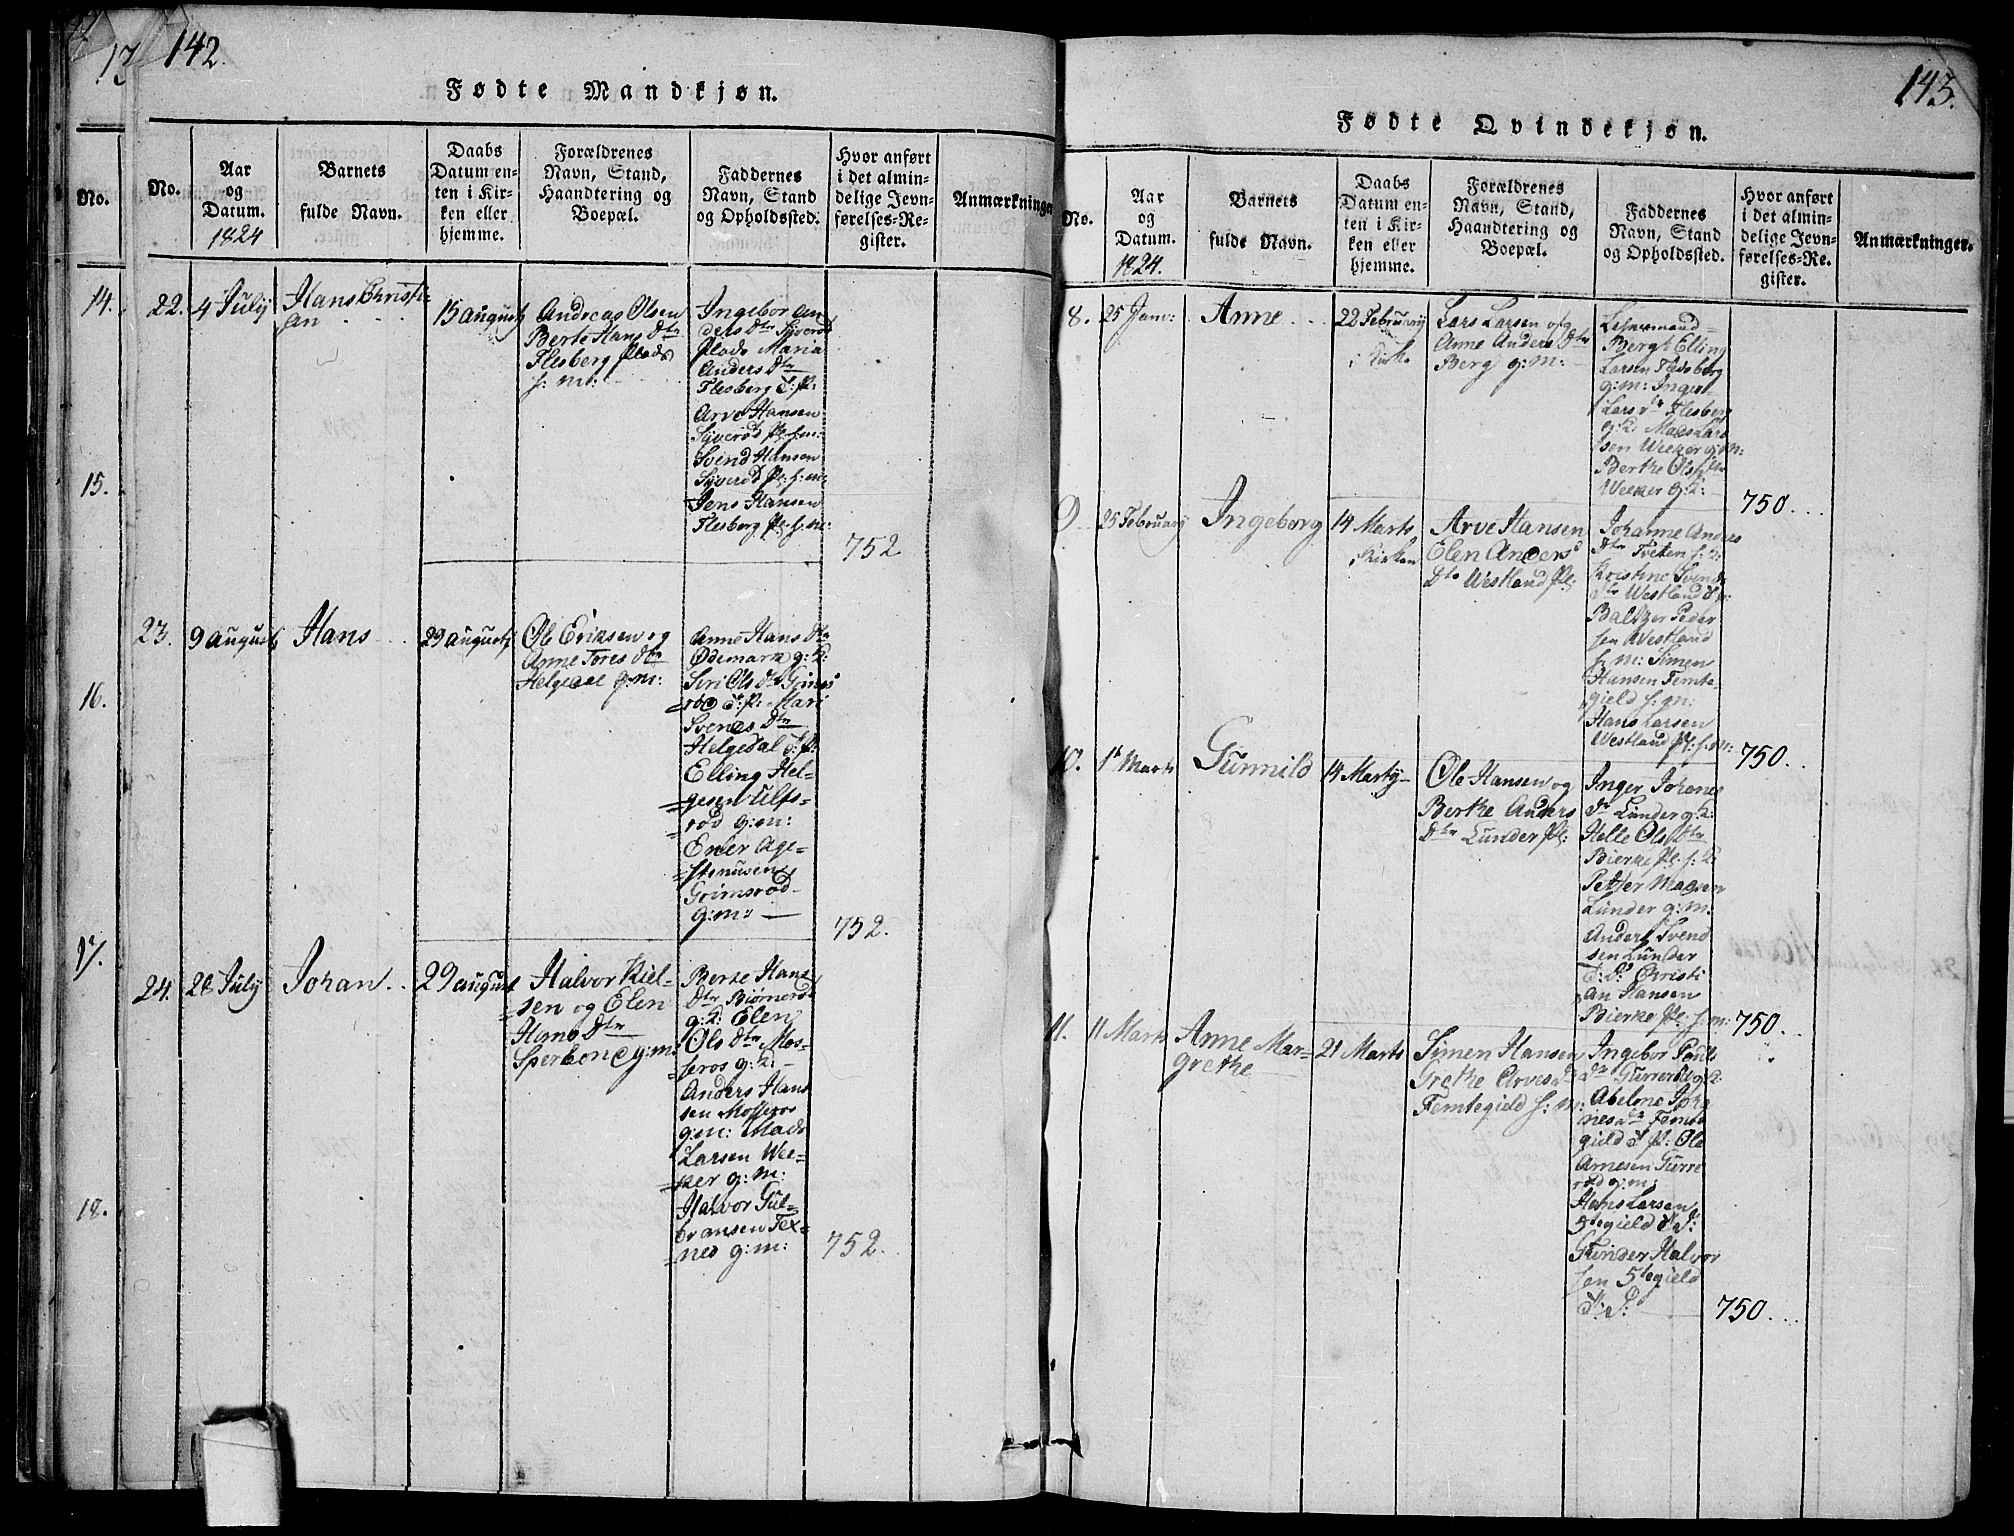 142.
Fødte Mandkjøn.
No.
14.
15.
16.
17.
18.
No.
Aar
og
Datum.
1824
Barnets
fulde Navn.
Daabs
Datum en-
ten i Kir-
ken eller
hjemme.
Forældrenes
Navn, Stand,
Haandtering og
Boepæl.
Faddernes
Navn, Stand
og Opholdssted.
Hvor anført
i det almin-
delige Jevn-
førelses-Re-
gister.
Anmærkninger
22.
4 July
Hans Christi-
an
15 august
Andreas Olsen
Berte Hans Dtr
Flesberg Plads
f: m:
Ingebor An
ders Dtr Syverød
Plads Maria
Anders Dtr
Flesberg T: Pl:
Arve Hansen
Syverød Pl: f: m:
Svend Hansen
Syverød Pl: f: m:
Jens Hansen
Flesberg Pl: f: m:
752
23.
9 august
Hans
29 august
Ole Eriksen og
Anne Tores Dtr
Helgedal g: m:
Anne Hans Dtr
Ødemark g: K:
Siri Ols Dtr Grims
rød T: P: Mari
Svends Dtr
Helgedal T: P:
Elling Hel-
gesen Ulfs-
rød g: m:
Ener Age-
stenusen
Grimsrød
g: m:
752.
24.
28 July
Johan
29 august
Halvor Kiel-
sen og Elen
Hans Dtr
Sperbond g: m.
Berte Hans
Dtr Biørnerød
g: K: Elen
Ols Dtr Mos-
seros g: K:
Anders Hans
sen Mosseros
g: m: Mads
Larsen Wee-
ker g: m:
Halvor Gul-
bransen Tex-
ned g: m:
752.
143.
Fødte Qvindekjøn.
No.
Aar
og
Datum.
1824.
Barnets
fulde Navn.
Daabs
Datum en-
ten i Kir-
ken eller
hjemme.
Forældrenes
Navn, Stand,
Haandtering og
Boepæl.
Faddernes
Navn, Stand
og Opholdssted.
Hvor anført
i det almin-
delige Jevn-
førelses-Re-
gister.
Anmærkninger.
8.
25 Jan:
Anne
22 February
i Kirke
Lars Larsen og
Anne Anders Dtr
Berg g: m:
Berg Elling
Larsen Flesberg
g: m: Inger
Lars Dr Flesberg
g: K. Mads Lar
sen Weeker g: m:
Berthe Ols Dtr
Weeker g: K:
750.
9
25 February
Ingeborg
14 Marts
i Kirken
Arve Hansen
Elen Anders
Dtr Westland Pl:
Johanne Anders
Dtr Tveten f: K:
Kristine Svend
Dtr Westland T P:
Baltzer Peder
sen Westland
f: m: Simen
Hansen Femte-
gield f: m:
Hans Larsen
Westland Pl: f: m:
750.
10.
1te Marts
Gunnild
14 Marts
Ole Hansen og
Berthe Anders
Dtr Lunder Pl:
Inger Johanes
Dr Lunder g: K:
Helle Ols Dtr
Bierke Pl: f: K:
Petter Madsen
Lunder g: m:
Anders Svend
sen Lunder
T: D: Christi
an Hansen
Bierke Pl: f: m:
750.
11.
11 Marts
Anne Mar-
grethe
21 Marts
Simen Hansen
Grethe Arves Dr
Femtegield f: m:
Ingebor Pouls
Dtr Gurrerød g: K:
Abelone Joha
nes Dr Femte
gield T Pl: Ole
Arnesen Gurre
rød g: m:
Hans Larsen
5tegield T: P:
Gunder Halvor
sen 5tegield
T: P:
750.